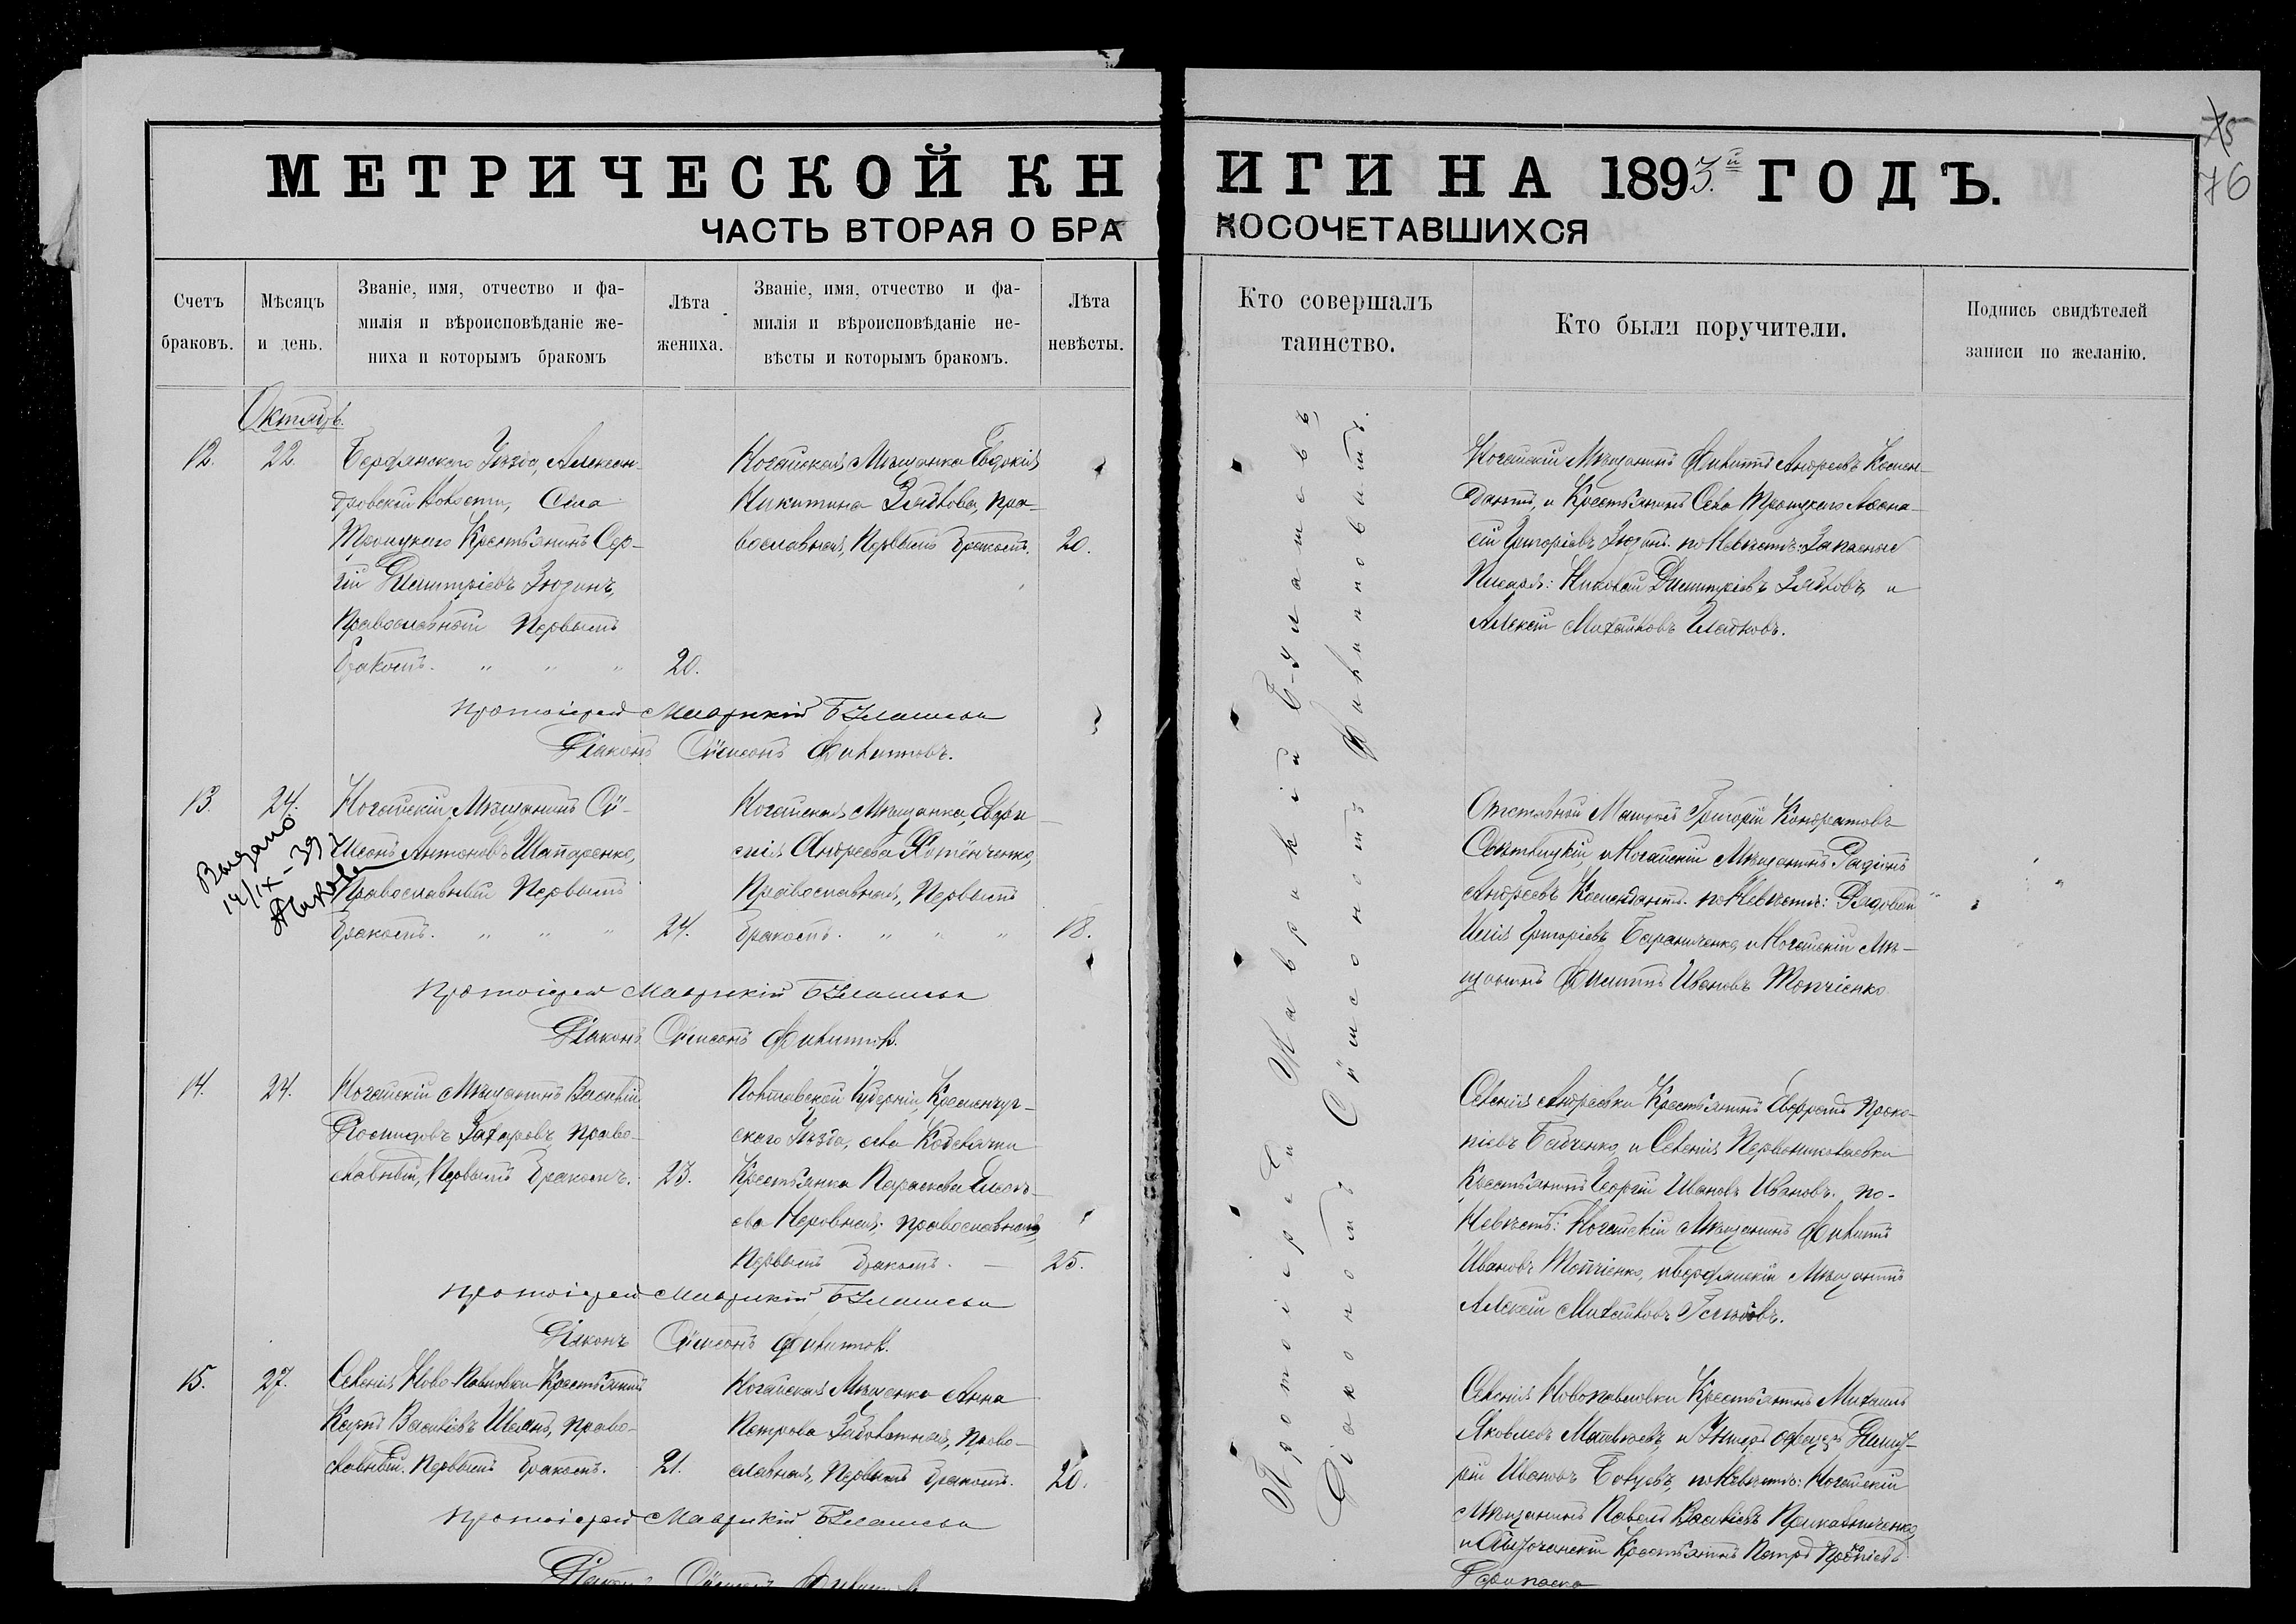 75
76
МЕТРИЧЕСКОЙ КНИГИ НА 1893.й ГОДЪ.
ЧАСТЬ ВТОРАЯ О БРАКОСОЧЕТАВШИХСЯ
Счетъ
браковъ.
Мѣсяцъ
и день.
Званіе, имя, отчество и фа-
милія и вѣроисповѣданіе же-
ниха и которымъ бракомъ
Лѣта
жениха.
Званіе, имя, отчество и фа-
милія и вѣроисповѣданіе не-
вѣсты и которымъ бракомъ.
Лѣта
невѣсты.
Кто совершалъ
таинство.
Кто были поручители.
Подпись свидѣтелей
записи по желанію.
Октябрь.
12.
22.
Бердянскаго Уѣзда, Алексан-
дровской Волости, Села
Троицкаго Крестьянинъ Сер-
гій Димитріевъ Зюзинъ,
Православный Первымъ
бракомъ. " " "
20.
Ногайская Мѣщанка Евдокія
Никитина Зяблова, Пра-
вославная, Первымъ бракомъ.
20.
Ногайскій Мѣщанинъ Филиппъ Андреевъ Комен-
дантъ, и Крестьянинъ Села Троицкаго Афана-
сій Григорьевъ Зюзинъ. по Невѣстѣ: Запасный
Писарь: Николай Димитріевъ Зябловъ и
Алексѣй Михайловъ
Протоіерей Маврикій Бѣлашевъ
Діаконъ Сѵмеонъ Филипповъ.
13.
24.
Ногайскій Мѣщанинъ Сѵ-
меонъ Антоновъ Шапаренко,
Православный Первымъ
бракомъ. " " "
24.
Ногайская Мѣщанка, Евфи-
мія Андреева
Православная, Первымъ
бракомъ. " " "
18.
Отставной Матросъ Григорій Кондратовъ
и Ногайскій Мѣщанинъ Родіонъ
Андреевъ Комендантъ. по Невѣстѣ: Рядовый
Илія Григорьевъ Бараниченко, и Ногайскій Мѣ-
щанинъ Филиппъ Ивановъ Топчіенко.
Выдано
14/IX-39
Протоіерей Маврикій Бѣлашевъ
Діаконъ Сѵмеонъ Филипповъ.
14.
24.
Ногайскій Мѣщанинъ Василій
Захаровъ, Право-
славный, Первымъ бракомъ.
23.
Полтавской Губерніи, Кременчуг-
скаго Уѣзда, села
Крестьянка Параскева
ева Неровная, православная,
Первымъ бракомъ. —
25.
Селенія Андреевки Крестьянинъ Евфремъ Проко-
піевъ Бабченко, и Селенія Первониколаевки
Крестьянинъ Георгій Ивановъ Ивановъ. по-
Невѣстѣ: Ногайскій Мѣщанинъ Филиппъ
Ивановъ Топчіенко, и Бердянскій Мѣщанинъ
Алексѣй Михайловъ
Протоіерей Маврикій Бѣлашевъ
Діаконъ Сѵмеонъ Филипповъ.
15.
27.
Селенія Ново-Павловки Крестьянинъ
Карпъ Васильевъ Право-
славный. Первымъ бракомъ.
21.
Ногайская Мѣщанка Анна
Петрова Заболотная, Право-
славная, Первымъ бракомъ.
20.
Селенія Новопавловки Крестьянинъ Михаилъ
Яковлевъ Матвѣевъ, и Унтеръ офицеръ Димит-
рій Ивановъ по Невѣстѣ: Ногайскій
Мѣщанинъ Павелъ Васильевъ
и Крестьянинъ Петръ
Протоіерей Маврикій Бѣлашевъ
Діаконъ Сѵмеонъ Филипповъ
Протоіерей Маврикій Бѣлашевъ
Діаконъ Сѵмеонъ Филипповъ.